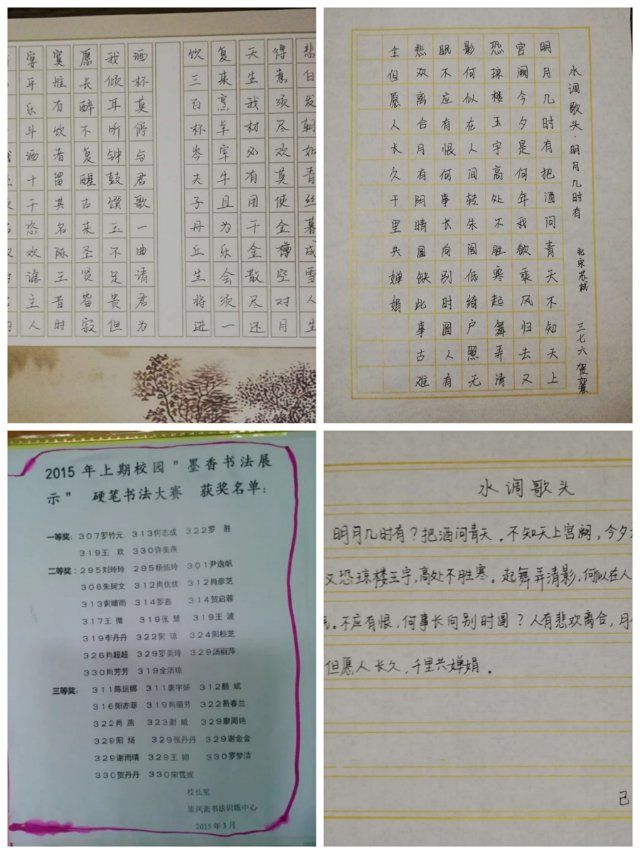 悲白发朝如青丝暮成雪人生
得意须尽欢莫使金樽空对月
天生我材必有用千金散尽还
复来烹羊宰牛且为乐会须一
饮三百杯岑夫子丹丘生将进
酒杯莫停与君歌一曲请君为
我倾耳听钟鼓馔玉不足贵但
愿长醉不复醒古来圣贤皆寂
寞惟有饮者留其名陈王昔时
宴平乐斗酒十千恣欢谑主人
水调歌头·明月几时有 北宋苏轼 三七六贺
明月几时有把酒问青天不知天上
宫阙今夕是何年我欲乘风归去又
恐琼楼玉宇高处不胜寒起舞弄清
影何似在人间转朱阁低绮户照无
眠不应有恨何事长向别时圆人有
悲欢离合月有阴晴圆缺此事古难
全但愿人长久千里共婵娟
2015 年上期校园"墨香书法展
示" 硬笔书法大赛 获奖名单：
一等奖：307罗竹元 313何志成 322罗 胜
319王 欢 330许美燕
二等奖：295刘玲玲 295杨施玲 301尹逸帆
308朱珂文 312肖优优 312肖彦芝
313黄晴雨 314罗嘉 314贺启蓉
317王 微 319张 慧 319王 波
319李丹丹 322贺 琼 324阳桂芝
326肖超超 329罗美玲 329汤丽萍
330肖芳芳 319全洁琼
三等奖：311陈运娜 311唐宇妍 312颜 斌
316阳亦菲 319肖丽芳 322易春兰
322肖 燕 323谢 威 329廖周艳
329阳 炀 329张丹丹 329谢金金
329谢雨晴 329王 婷 330罗梦洁
330贺丹丹 330宋雪成
校长室
书法训练中心
2015年3月
水调歌头
明月几时有？把酒问青天。不知天上宫阙，今夕
又恐琼楼玉宇，高处不胜寒。起舞弄清影，何似在人
。不应有恨，何事长向别时圆？人有悲欢离合，月
但愿人长久，千里共婵娟。
己